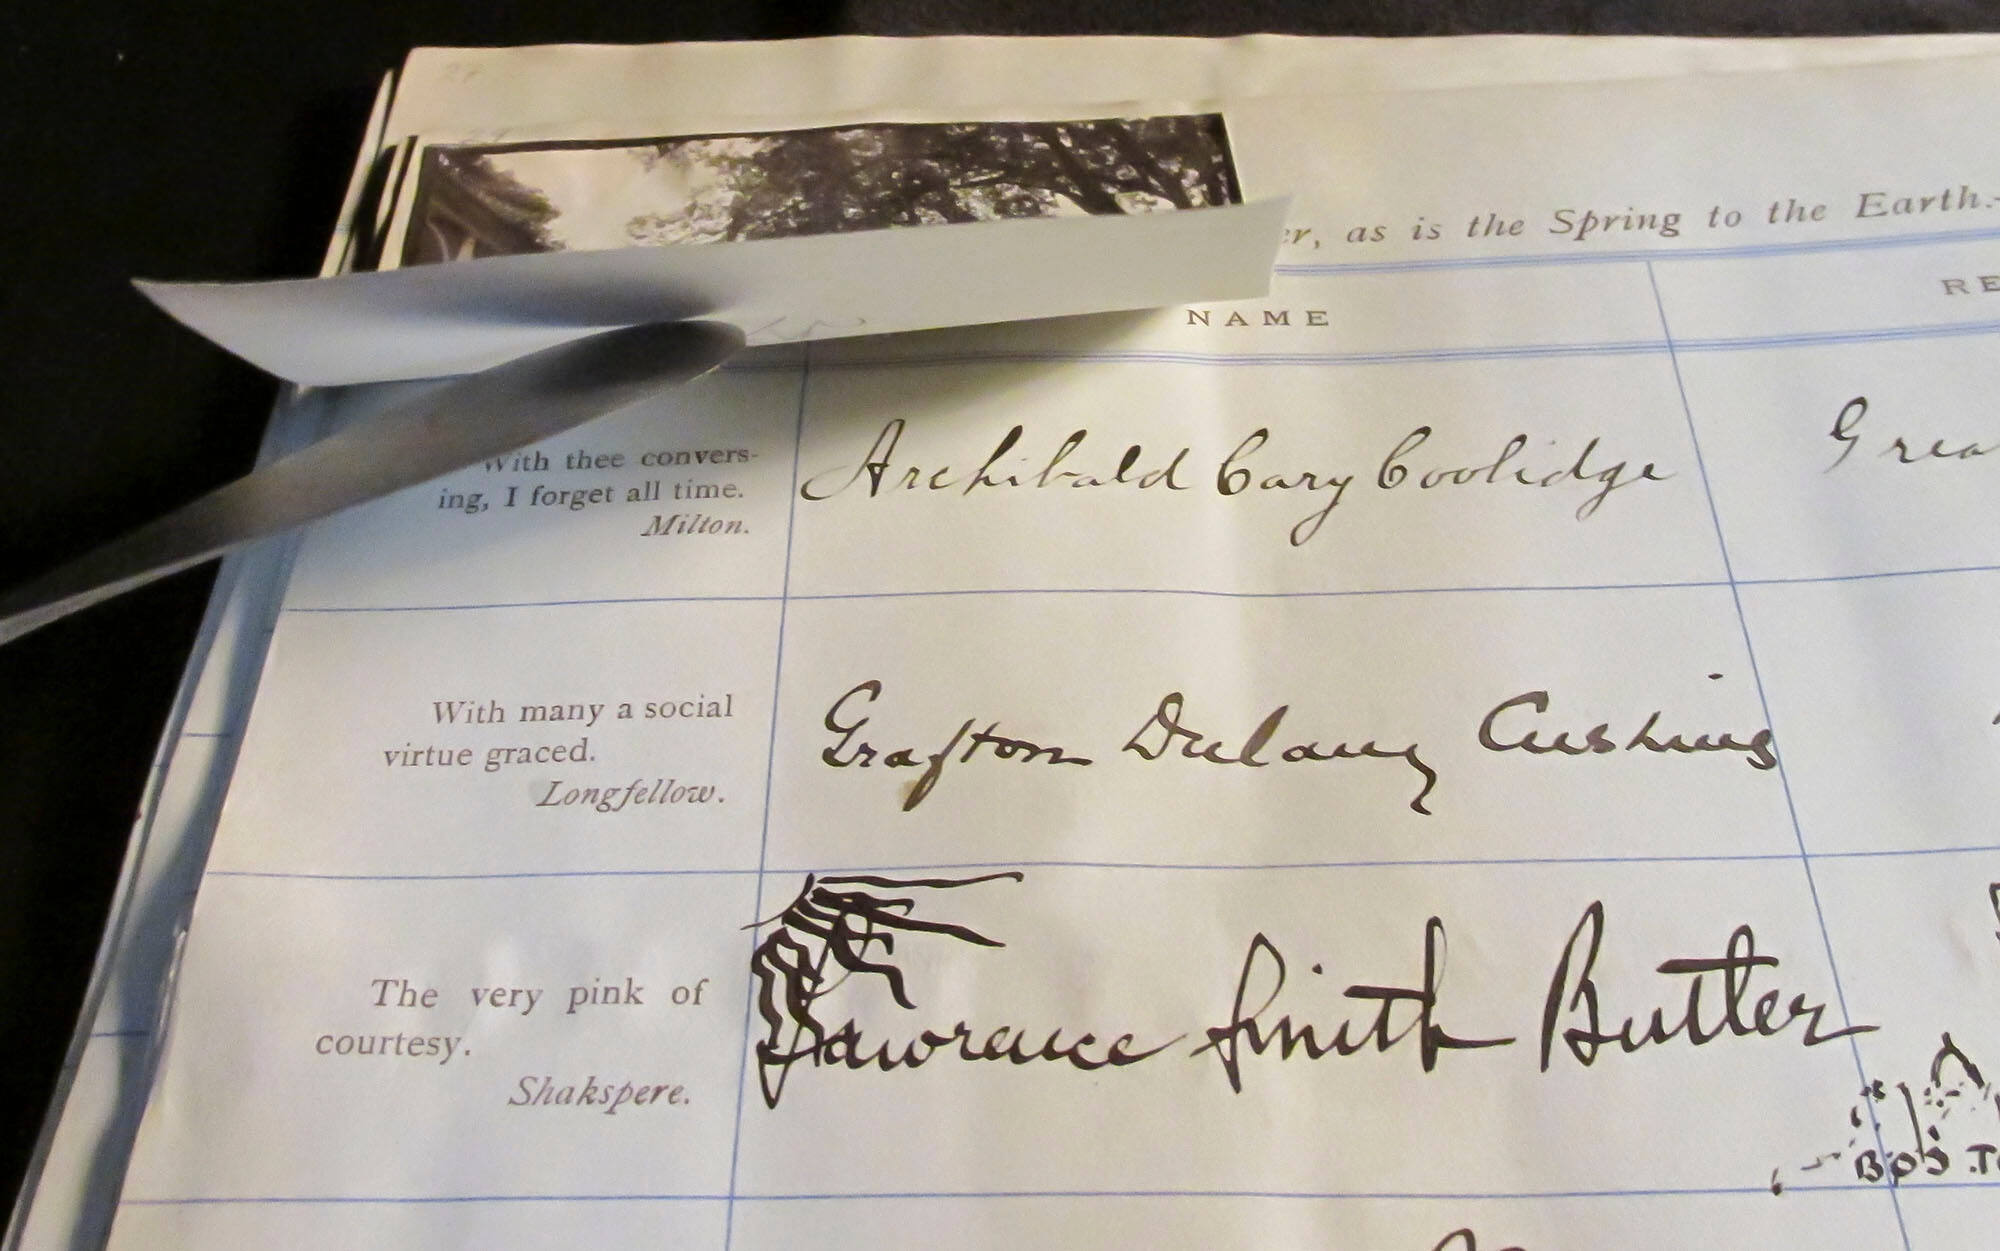 as is the Spring to the Earth.
NAME
With thee convers-
ing, I forget all time.
Milton.
Archibald Cary Coolidge
With many a social
virtue graced.
Longfellow.
Grafton Dulany Cushing
The very pink of
courtesy.
Shakspere.
Lawrence Smith Butler